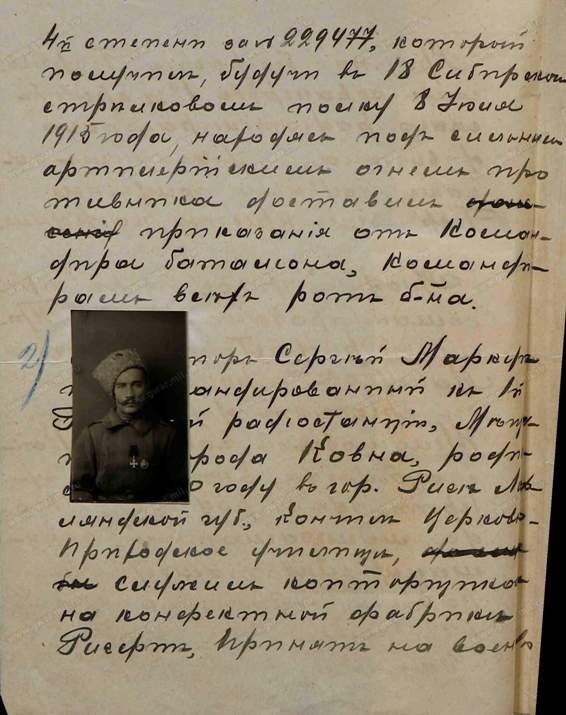 4й степени за № 229477, который
получил, будучи въ 18 Сибирском
стрѣлковомъ полку 8 Июля
1915 года, находясь подъ сильнымъ
артиллерійскимъ огнемъ про
тивника доставилъ
приказанія отъ Коман-
дира баталіона, Команди-
рамъ всѣхъ ротъ б-на.
2) Сергѣй Маркеръ
андированный къ 1й
й радіостанціи, Мѣщ-
рода Ковна, роди-
0 году въ гор. Ригѣ Лиф
ляндской губ., Кончилъ Церковно-
Приходское училище,
служилъ конторщикомъ
на конфектной фабрикѣ
Ригертъ, Принятъ на военн